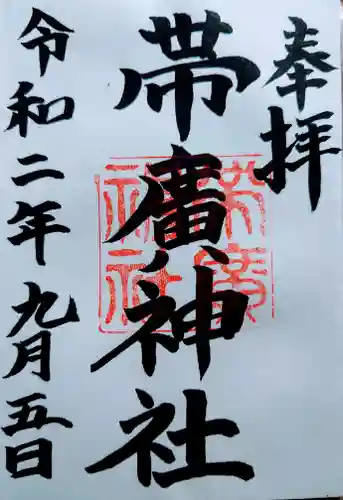 奉拝
帯廣神社
令和二年九月五日
帯廣神社